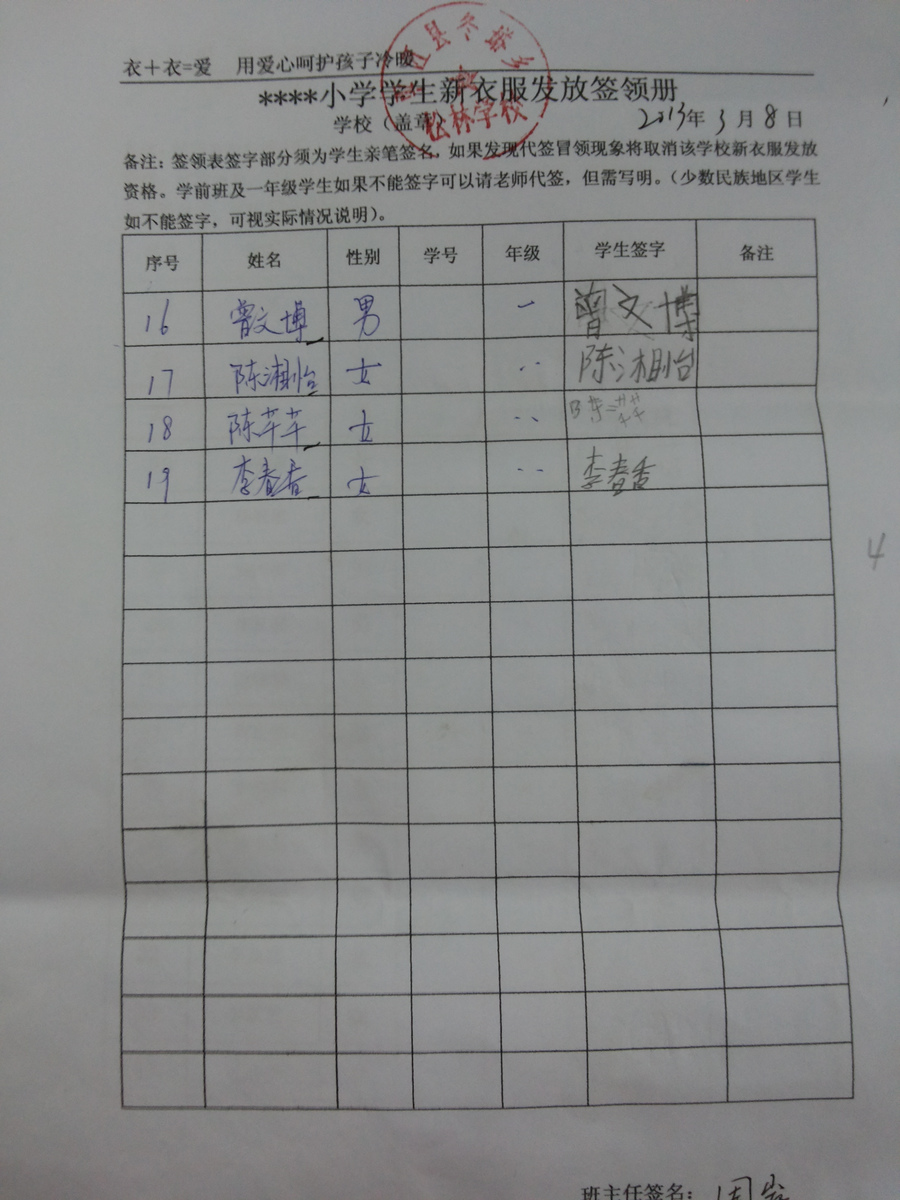 衣＋衣=爱 用爱心呵护孩子冷暖
县冬塔乡
松林学校
****小学学生新衣服发放签领册
学校（盖章） 2013年 3 月 8 日
备注：签领表签字部分须为学生亲笔签名，如果发现代签冒领现象将取消该学校新衣服发放
资格。学前班及一年级学生如果不能签字可以请老师代签，但需写明。（少数民族地区学生
如不能签字，可视实际情况说明）。
序号 姓名 性别 学号 年级 学生签字 备注
16 曾文博 男 一 曾文博
17 陈湘怡 女 ‥ 陈湘怡
18 陈芊芊 女 ‥ 陈芊芊
19 李春香 女 ‥ 李春香
4
班主任签名：周